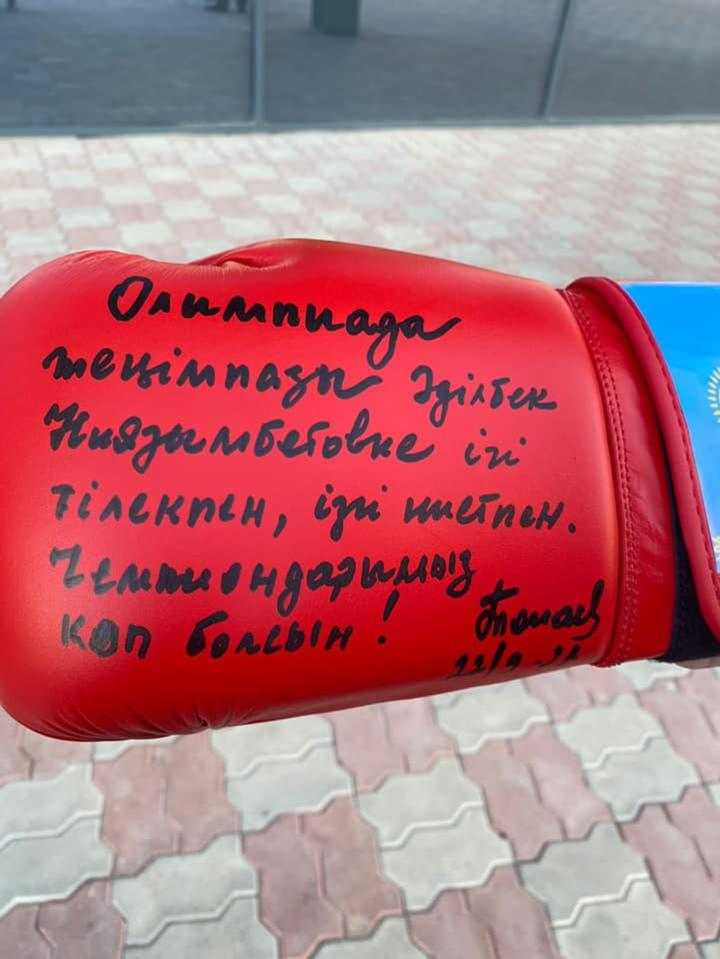 Олимпиада
жеңімпазы Әділбек
Ниязымбетовке ізгі
тілекпен, ізгі ниетпен.
Чемпиондарымыз
көп болсын!